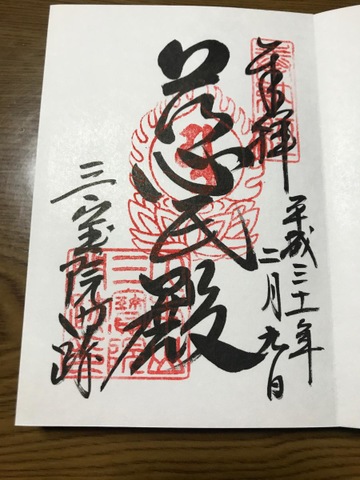 奉拝
平成三十一年
二月九日
慈氏殿
三宝院門跡